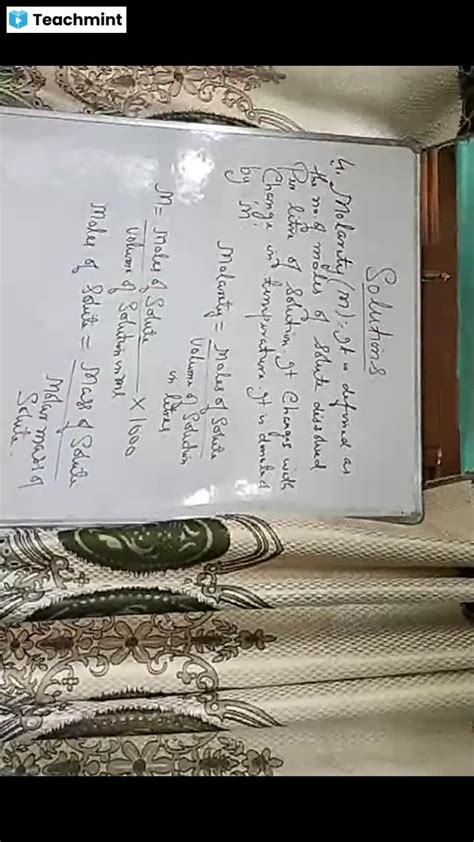 Teachmint
Solutions
4. Molarity (M):- It is defined as
the no. of moles of solute dissolved
Per litre of solution. It changes with
Change in temperature. It is denoted
by 'M'.
Molarity = Moles of Solute
Volume of Solution
in litres
M = Moles of Solute
Volume of Solution in ml
X 1000
Moles of Solute = Mass of Solute
Molar mass of
Solute.